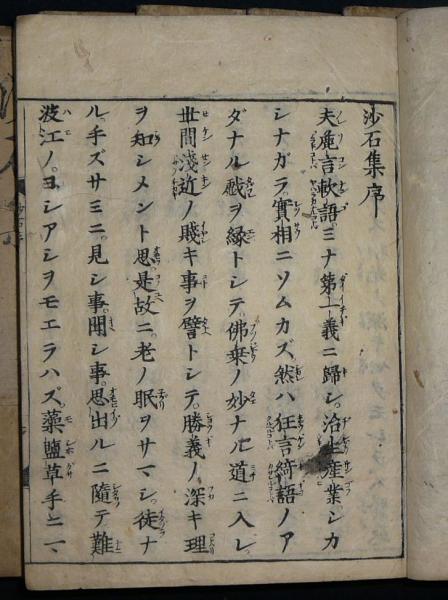 沙石集序
夫麁言軟語ミナ第一義ニ歸シ。治生産業シカ
シナガラ。實相ニソムカズ。然ハ狂言綺語ノア
ダナル戯ヲ縁トシテ。佛乗ノ妙ナル道ニ入レ。
世間淺近ノ賤キ事ヲ譬トシテ。勝義ノ深キ理
ヲ知シメント思。是故ニ。老ノ眠ヲサマシ。徒ナ
ル手ズサミニ。見シ事。聞シ事。思出ルニ隨テ難
波江ノ。ヨシアシヲモエラハズ。藻鹽草手ニ